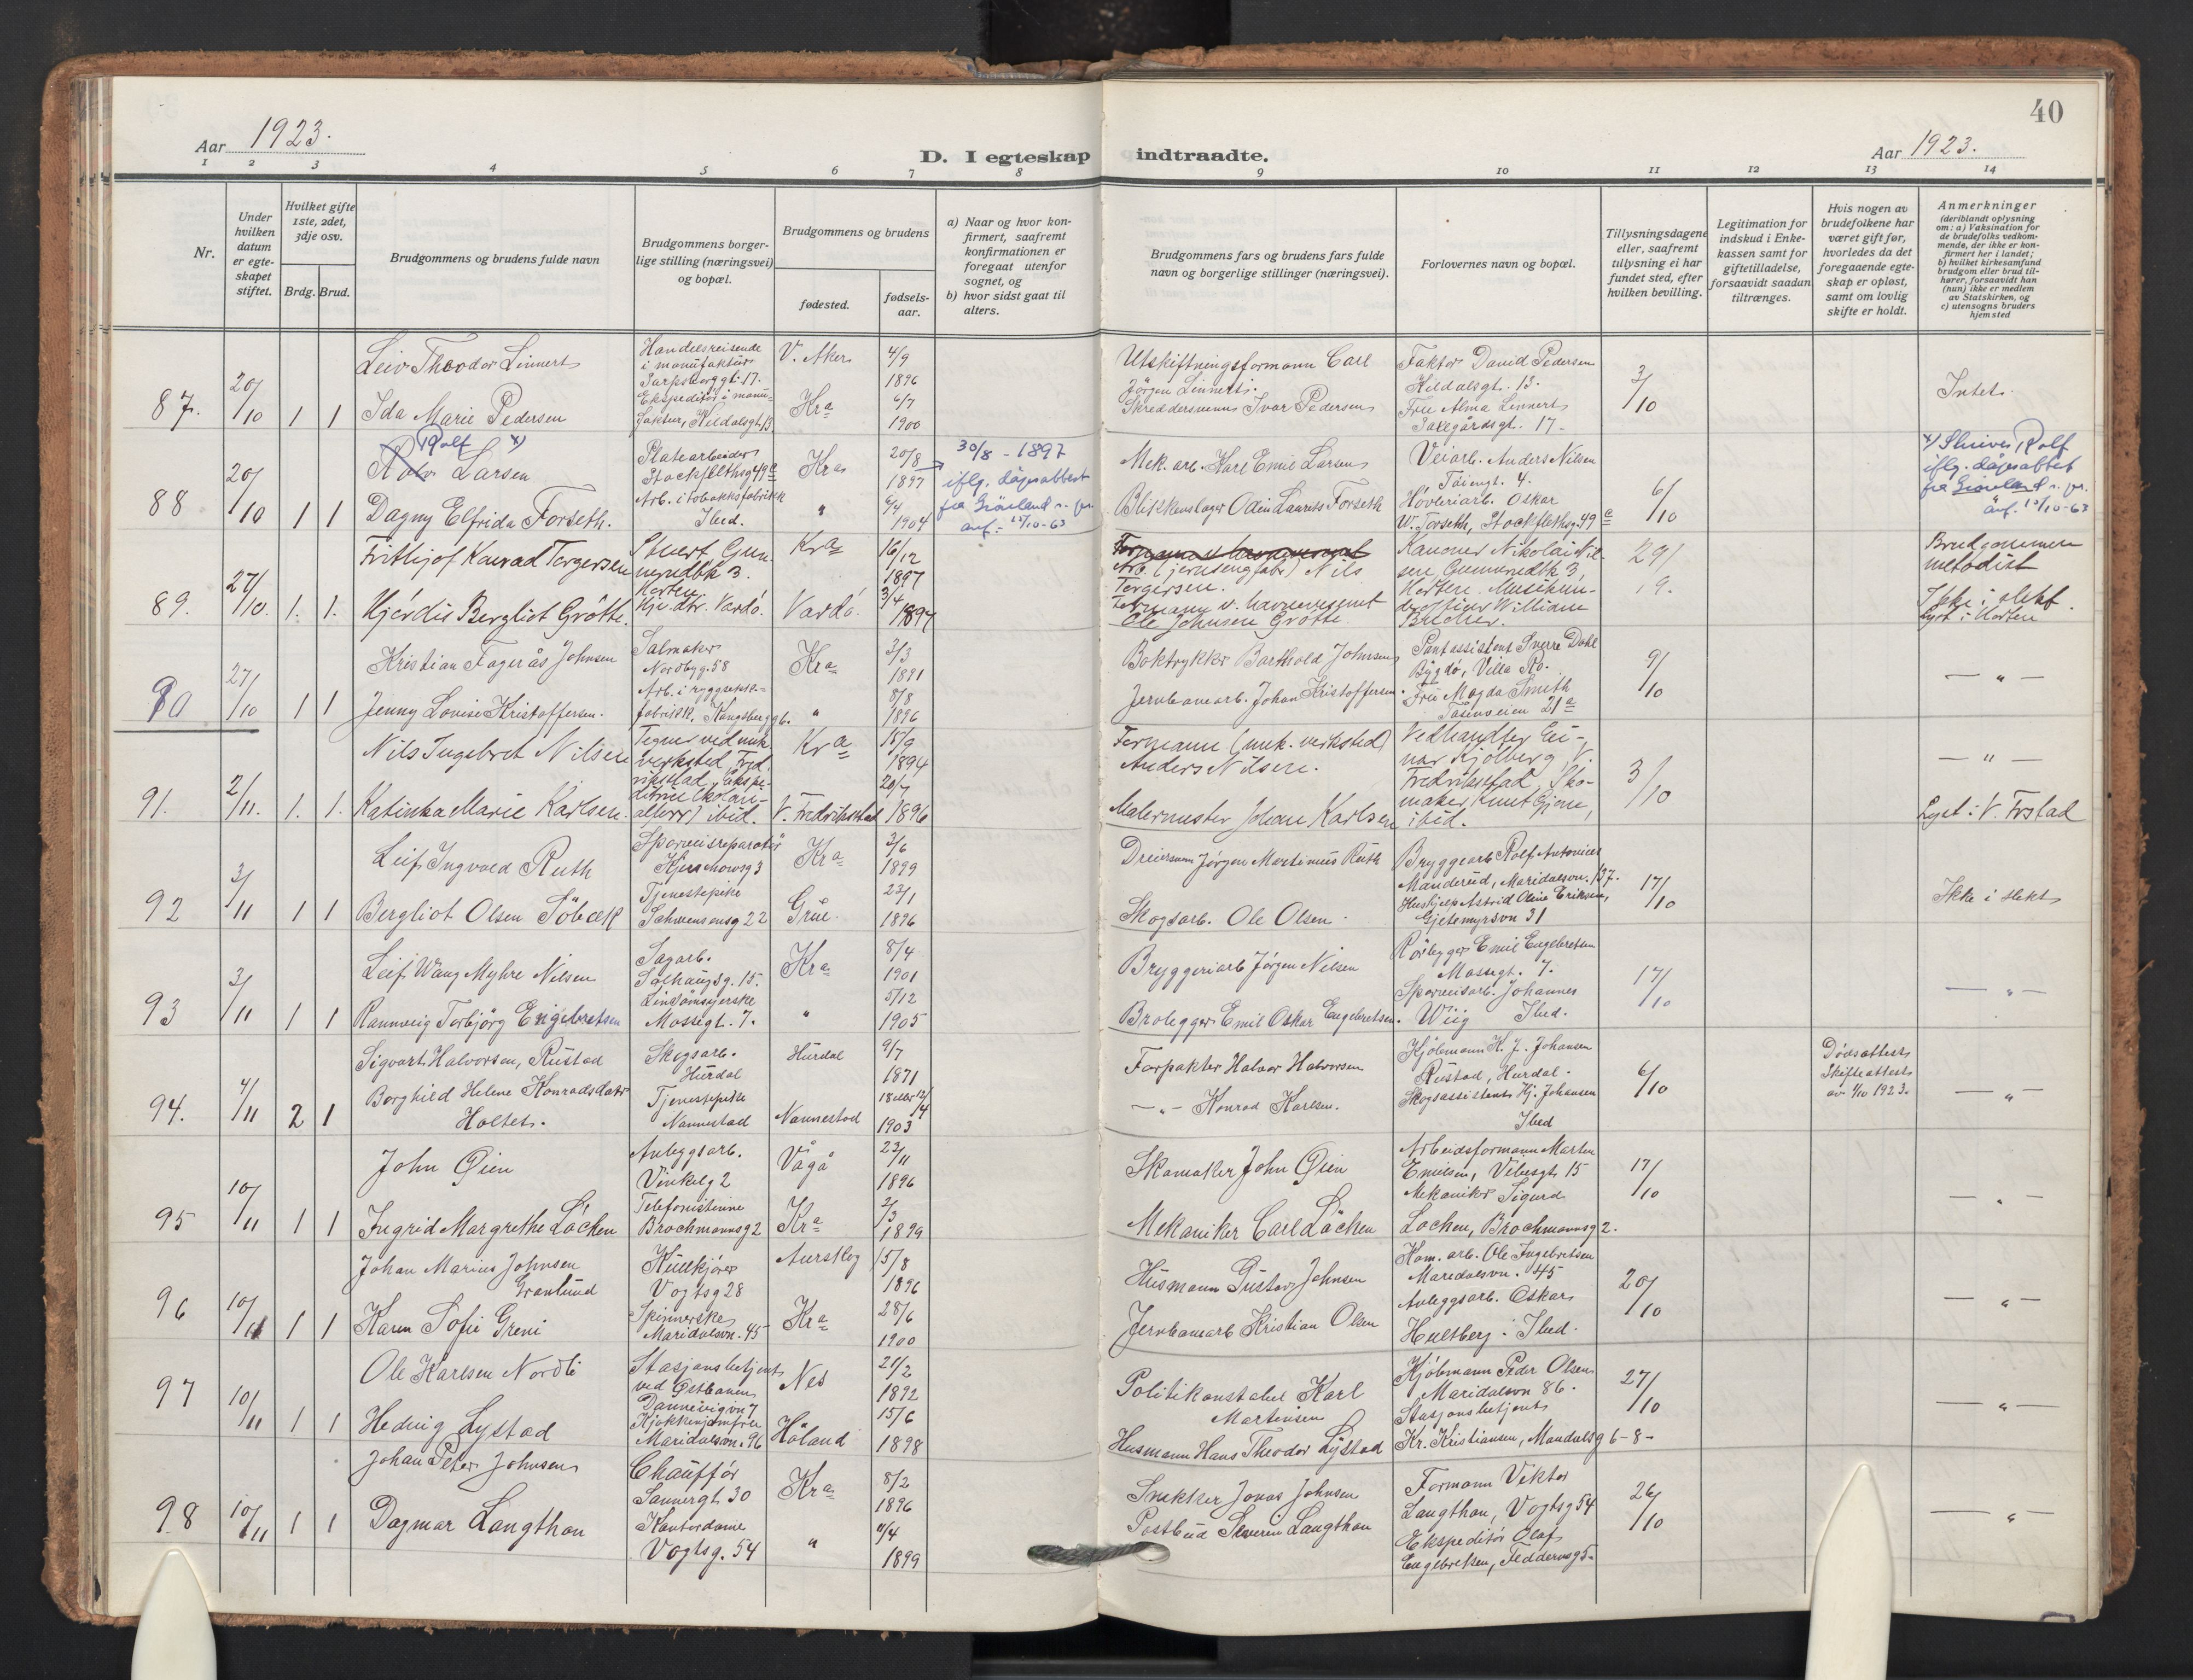 40
Aar 1923.
D. I egteskap indtraadte.
Aar 1923.
1 2 3 4 5 6 7 8 9 10 11 12 13 14
Nr.
Under hvilken datum er egteskapet stiftet.
Hvilket gifte 1ste, 2det, 3dje osv.
Brdg. Brud.
Brudgommens og brudens fulde navn
Brudgommens borgerlige stilling (næringsvei) og bopæl.
Brudgommens og brudens
fødested.
fødselsaar.
a) Naar og hvor konfirmert, saafremt konfirmationen er foregaat utenfor sognet, og
b) hvor sidst gaat til alters.
Brudgommens fars og brudens fars fulde navn og borgerlige stillinger (næringsvei).
Forlovernes navn og bopæl.
Tillysningsdagene eller, saafremt tillysning ei har fundet sted, efter hvilken bevilling.
Legitimation for indskud i Enkekassen samt for giftetilladelse, forsaavidt saadan tiltrænges.
Hvis nogen av brudefolkene har været gift før, hvorledes da det foregaaende egteskap er opløst, samt om lovlig skifte er holdt.
Anmerkninger
(deriblandt oplysning om: a) Vaksination for de brudefolks vedkommende, der ikke er konfirmert her i landet; b) hvilket kirkesamfund brudgom eller brud tilhører, forsaavidt han (hun) ikke er medlem av Statskirken, og c) utensogns bruders hjemsted
87. 20/10 1 1
Leiv Theodor Linnerts
Ida Marie Pedersen
Handelsreisende
i manufaktur
Sarpsborggt. 17.
Ekspeditør i manufaktur, Kildalsgt 13
V. Aker 4/9 1896
Kra 6/7 1900
Utskiftningsformann Carl
Jörgen Linnert.
Skreddersvenn Ivar Pedersen
Faktor David Pedersen
Kildalsgt. 13.
Fru Alma Linnert
17.
3/10
Intet.
88 20/10 1 1
Rolf x)
Rolv Larsen
Dagny Elfrida Forseth.
Platearbeider
Stockflethsg 49 c
Arb. i tobakksfabrikk
Ibid.
Kra 20/8 1897
" 6/4 1904
30/8 - 1897
iflg. dåpsattest
fra Grönland
anf. 15/10-63
Mek. arb. Karl Emil Larsen
Blikkenslager Odin Laurits Forseth
Veiarb. Anders Nilsen
Töiengt. 4.
Høvleriarb. Oskar
W. Forseth, Stockflethsg. 49 c
6/10
x) Skrives Rolf
iflg. dåpsattest
fra Grönland
anf. 15/10-63
89. 27/10. 1. 1.
Frithjof Konrad Torgersen
Hjördis Bergliot Grötte.
Stuert, Gunnerudbk 3.
Horten
Kra 16/12 1897
Vardö. 3/4 1897
Nils
Torgersen.
Formann v. havnevesenet
Ole Johnsen Grötte
Kanoner Nikolai Nilsen Gunnerudbk 3,
Horten.
William
29/9.
Brudgommen
metodist
Ikke i slekt.
Lyst i Horten
90 27/10 1 1
Kristian Fagerås Johnsen
Jenny Lovise Kristoffersen.
Salmaker
Nordbyg. 58
Arb. i ryggsekkfabrikk. Kongsbergg 6.
Kra 3/3 1891
" 8/8 1896
Boktrykker Barthold Johnsen
Jernbanearb. Johan Kristoffersen.
Pantassistent Sverre Dahl
Bygdø, Villa Ro.
Fru Magda Smith
Tåsenveien 21 a
9/10
— " —
91. 2/11. 1. 1.
Nils Ingebret Nilsen
Katinka Marie Karlsen.
Tegner ved mek.
verksted, Fredrikstad, Ekspeditrice
ibid.
Kra 15/9 1894
V. Fredrikstad 20/7 1896
Formann (mek. verksted)
Anders Nilsen.
Malermester Johan Karlsen
Vedhandler Einar Kjølberg, V.
Fredrikstad, Skomaker Knut Gjone,
ibid.
3/10
— " —
Lyst i V. Frstad
92 3/11 1 1
Leif Ingvald Ruth
Bergliot Olsen Söbæk
Sporveisreparatör
3
Tjenestepike
Schwensensg 22
Kra 3/6 1899
Grue. 23/1 1896
Dreiersvenn Jörgen Martinius Ruth
Skogsarb. Ole Olsen.
Bryggearb Rolf Antonius
Manderud, Maridalsvn. 137.
Hushjelp Astrid Oline Eriksen,
Gjetemyrsvn 31
17/10
Ikke i slekt
93 3/11 1 1
Leif Wang Myhre Nilsen
Rannveig Torbjörg Engebretsen
Sagarb.
Solhaugsg. 15.
Linsömsyerske
Mossegt. 7.
Kra 8/4 1901
" 5/12 1905
Bryggeriarb Jörgen Nilsen
Brolegger Emil Oskar Engebretsen.
Rörlegger Emil Engebretsen
Mossegt. 7.
Sporveisarb. Johannes
Wiig Ibid.
17/10
— " —
94. 4/11 2 1
Sigvart Halvorsen, Rustad
Borghild Helene Konradsdatr
Holtet.
Skogsarb.
Hurdal
Tjenestepike
Nannestad
Hurdal 9/7 1871
Nannestad 18 eller 12/4 1903
Forpakter Halvor Halvorsen
— " — Konrad Karlsen.
Kjöbmann K. J. Johansen
Rustad, Hurdal.
Skogsassistent Hj. Johansen
Ibid
6/10
Dødsattest
Skifteattest
av 1/10 1923.
— " —
95 10/11 1 1
John Øien
Ingrid Margrethe Löchen
Anleggsarb.
Vinkelg 2
Telefonistinne
Brochmannsg 2
Vågå 23/11 1896
Kra 3/3 1899
Skomaker John Øien
Mekaniker Carl Löchen
Arbeidsformann Marten
Emilsen, Vibesgt 15
Mekaniker Sigurd
Lochen, Brochmannsg 2.
17/10
— " —
96 10/11 1 1
Johan Marius Johnsen
Granlund
Karen Sofie Greni
Kullkjörer
Vogtsg 28
Spinnerske
Maridalsvn. 45
Aurskog 15/8 1896
Kra 28/6 1900
Husmann Gustav Johnsen
Jernbanearb Kristian Olsen
Kom. arb. Ole Ingebretsen
Maridalsvn. 45
Anleggsarb. Oskar
Hultberg. Ibid.
20/10
— " —
97 10/11 1 1
Ole Karlsen Nordli
Hedvig Lystad
Stasjonsbetjent
ved Østbanen
Dannevigvn 7
Kjøkkenjomfru
Maridalsvn. 96
Nes 21/2 1892
Høland 15/6 1898
Politikonstabel Karl
Martinsen
Husmann Hans Theodor Lystad
Kjöbmann Peder Olsen
Maridalsvn 86.
Stasjonsbetjent
Kr. Kristiansen, Mandalsg 6-8-
27/10
— " —
98 10/11 1 1
Johan Peter Johnsen
Dagmar Langthon
Chauffør
Sannergt 30
Kontordame
Vogtsg. 54
Kra 8/2 1896
" 11/4 1899
Snekker Jonas Johnsen
Postbud Severin Langthon
Formann Viktor
Langthon, Vogtsg 54
Ekspeditör Olaf
Engebretsen, Feddersensg 5-
26/10
— " —